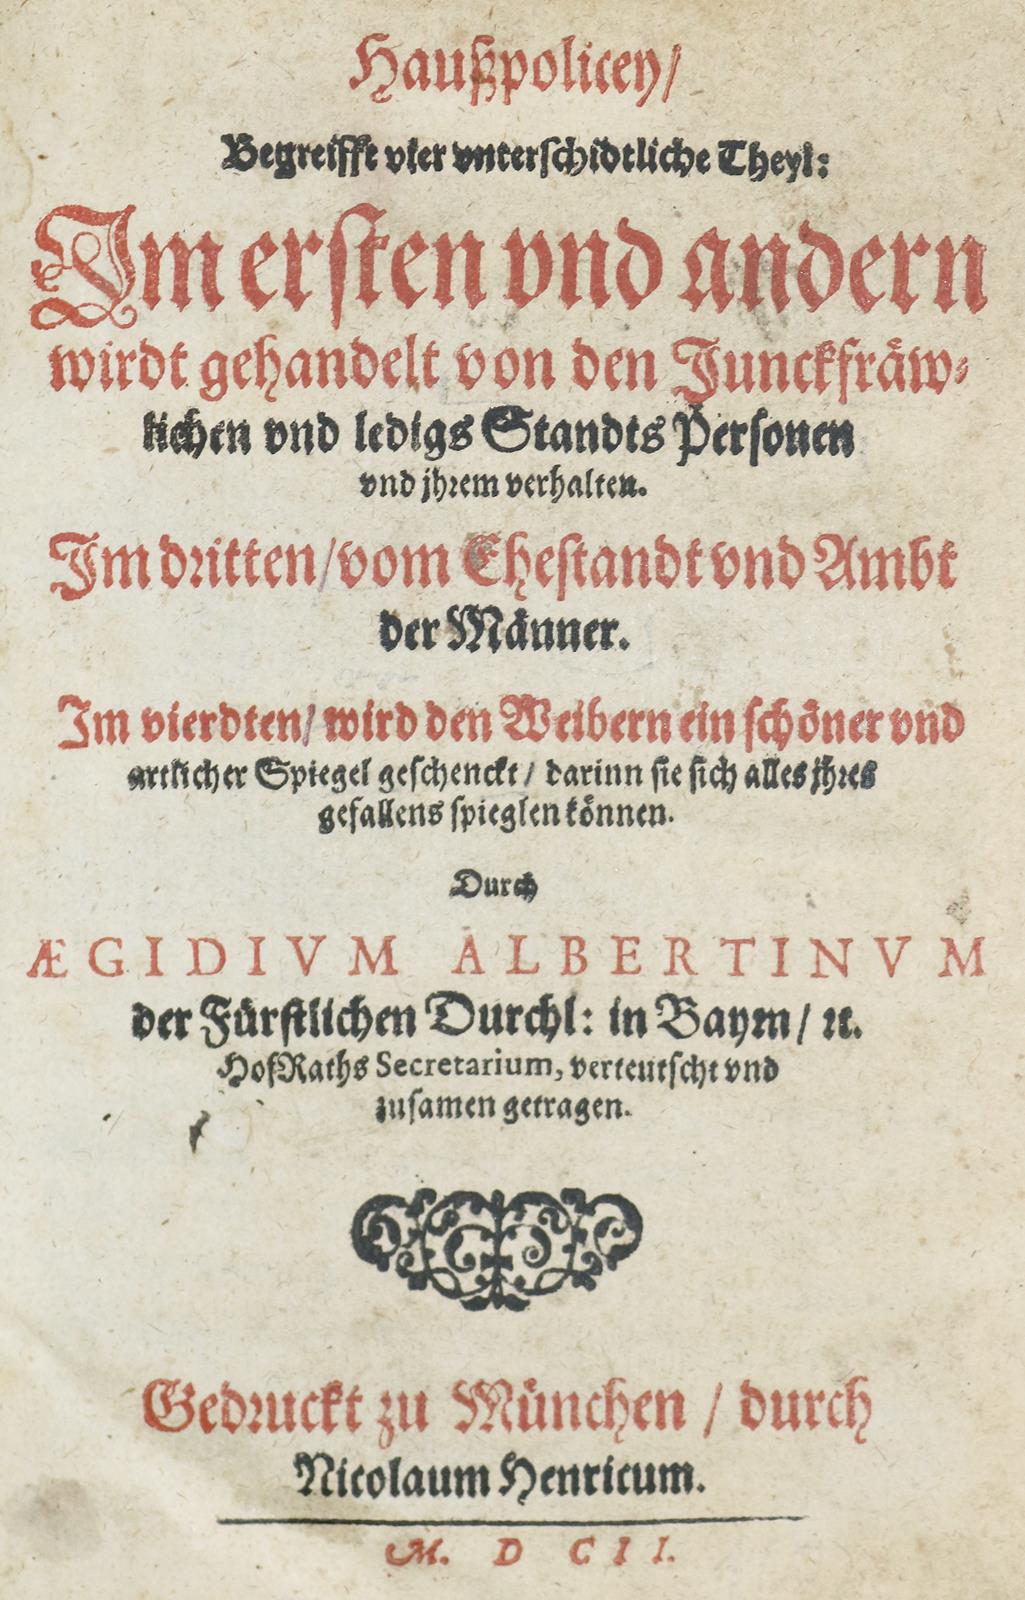 Haußpolicey/
Begreifft vier vnterschidtliche Theyl:
Im ersten vnd andern
wirdt gehandelt von den Junckfräw-
lichen vnd ledigs Standts Personen
vnd jhrem verhalten.
Im dritten/ vom Ehestandt vnd Ambt
der Männer.
Im vierdten/ wird den Weibern ein schöner vnd
artlicher Spiegel geschenckt/ darinn sie sich alles jhres
gefallens spieglen können.
Durch
ÆGIDIVM ALBERTINVM
der Fürstlichen Durchl: in Bayrn/ ꝛc.
HofRaths Secretarium, verteutscht vnd
zusamen getragen.
Gedruckt zu München / durch
Nicolaum Henricum.
M. D C I I.